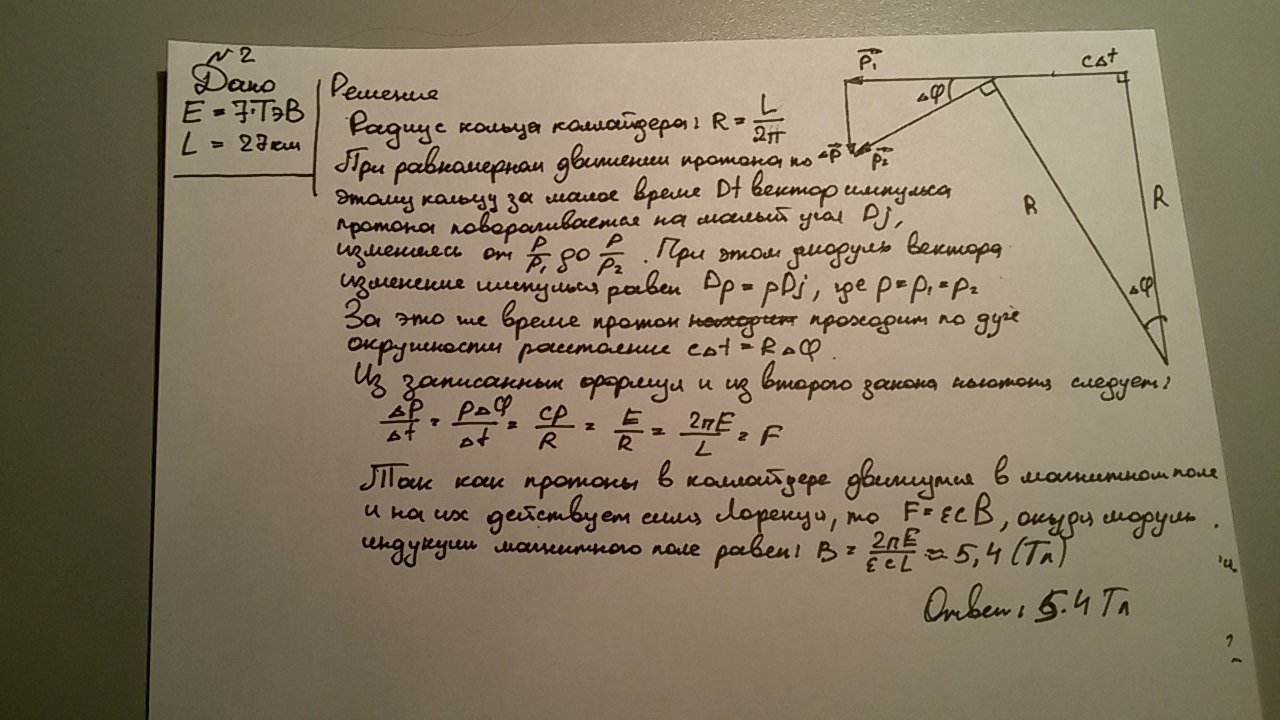 № 2
Дано
E = 7·ТэВ
L = 27км
Решение
Радиус кольца коллайдера: R = L/2π
При равномерном движении протона по
этому кольцу за малое време Dt вектор импульса
протона поворачивается на малый угол Dj,
изменяясь от P/P₁ до P/P₂. При этом модуль вектора
изменение импульса равен Dp = pDj, где p = p₁ = p₂
За это же време протон находит проходит по дуге
окружности расстояние cΔt = RΔφ.
Из записанных формул и из второго закона ньютона следует:
ΔP/Δt = PΔφ/Δt = CP/R = E/R = 2πE/L = F
Так как протоны в коллайдере движутся в магнитном поле
и на их действует сила Лоренца, то F = εcB, откуда модуль
индукции магнитного поле равен: B = 2πE/εcL ≈ 5,4 (Тл)
Ответ: 5.4 Тл
P₁
cΔt
Δφ
ΔP
P₂
R
R
Δφ